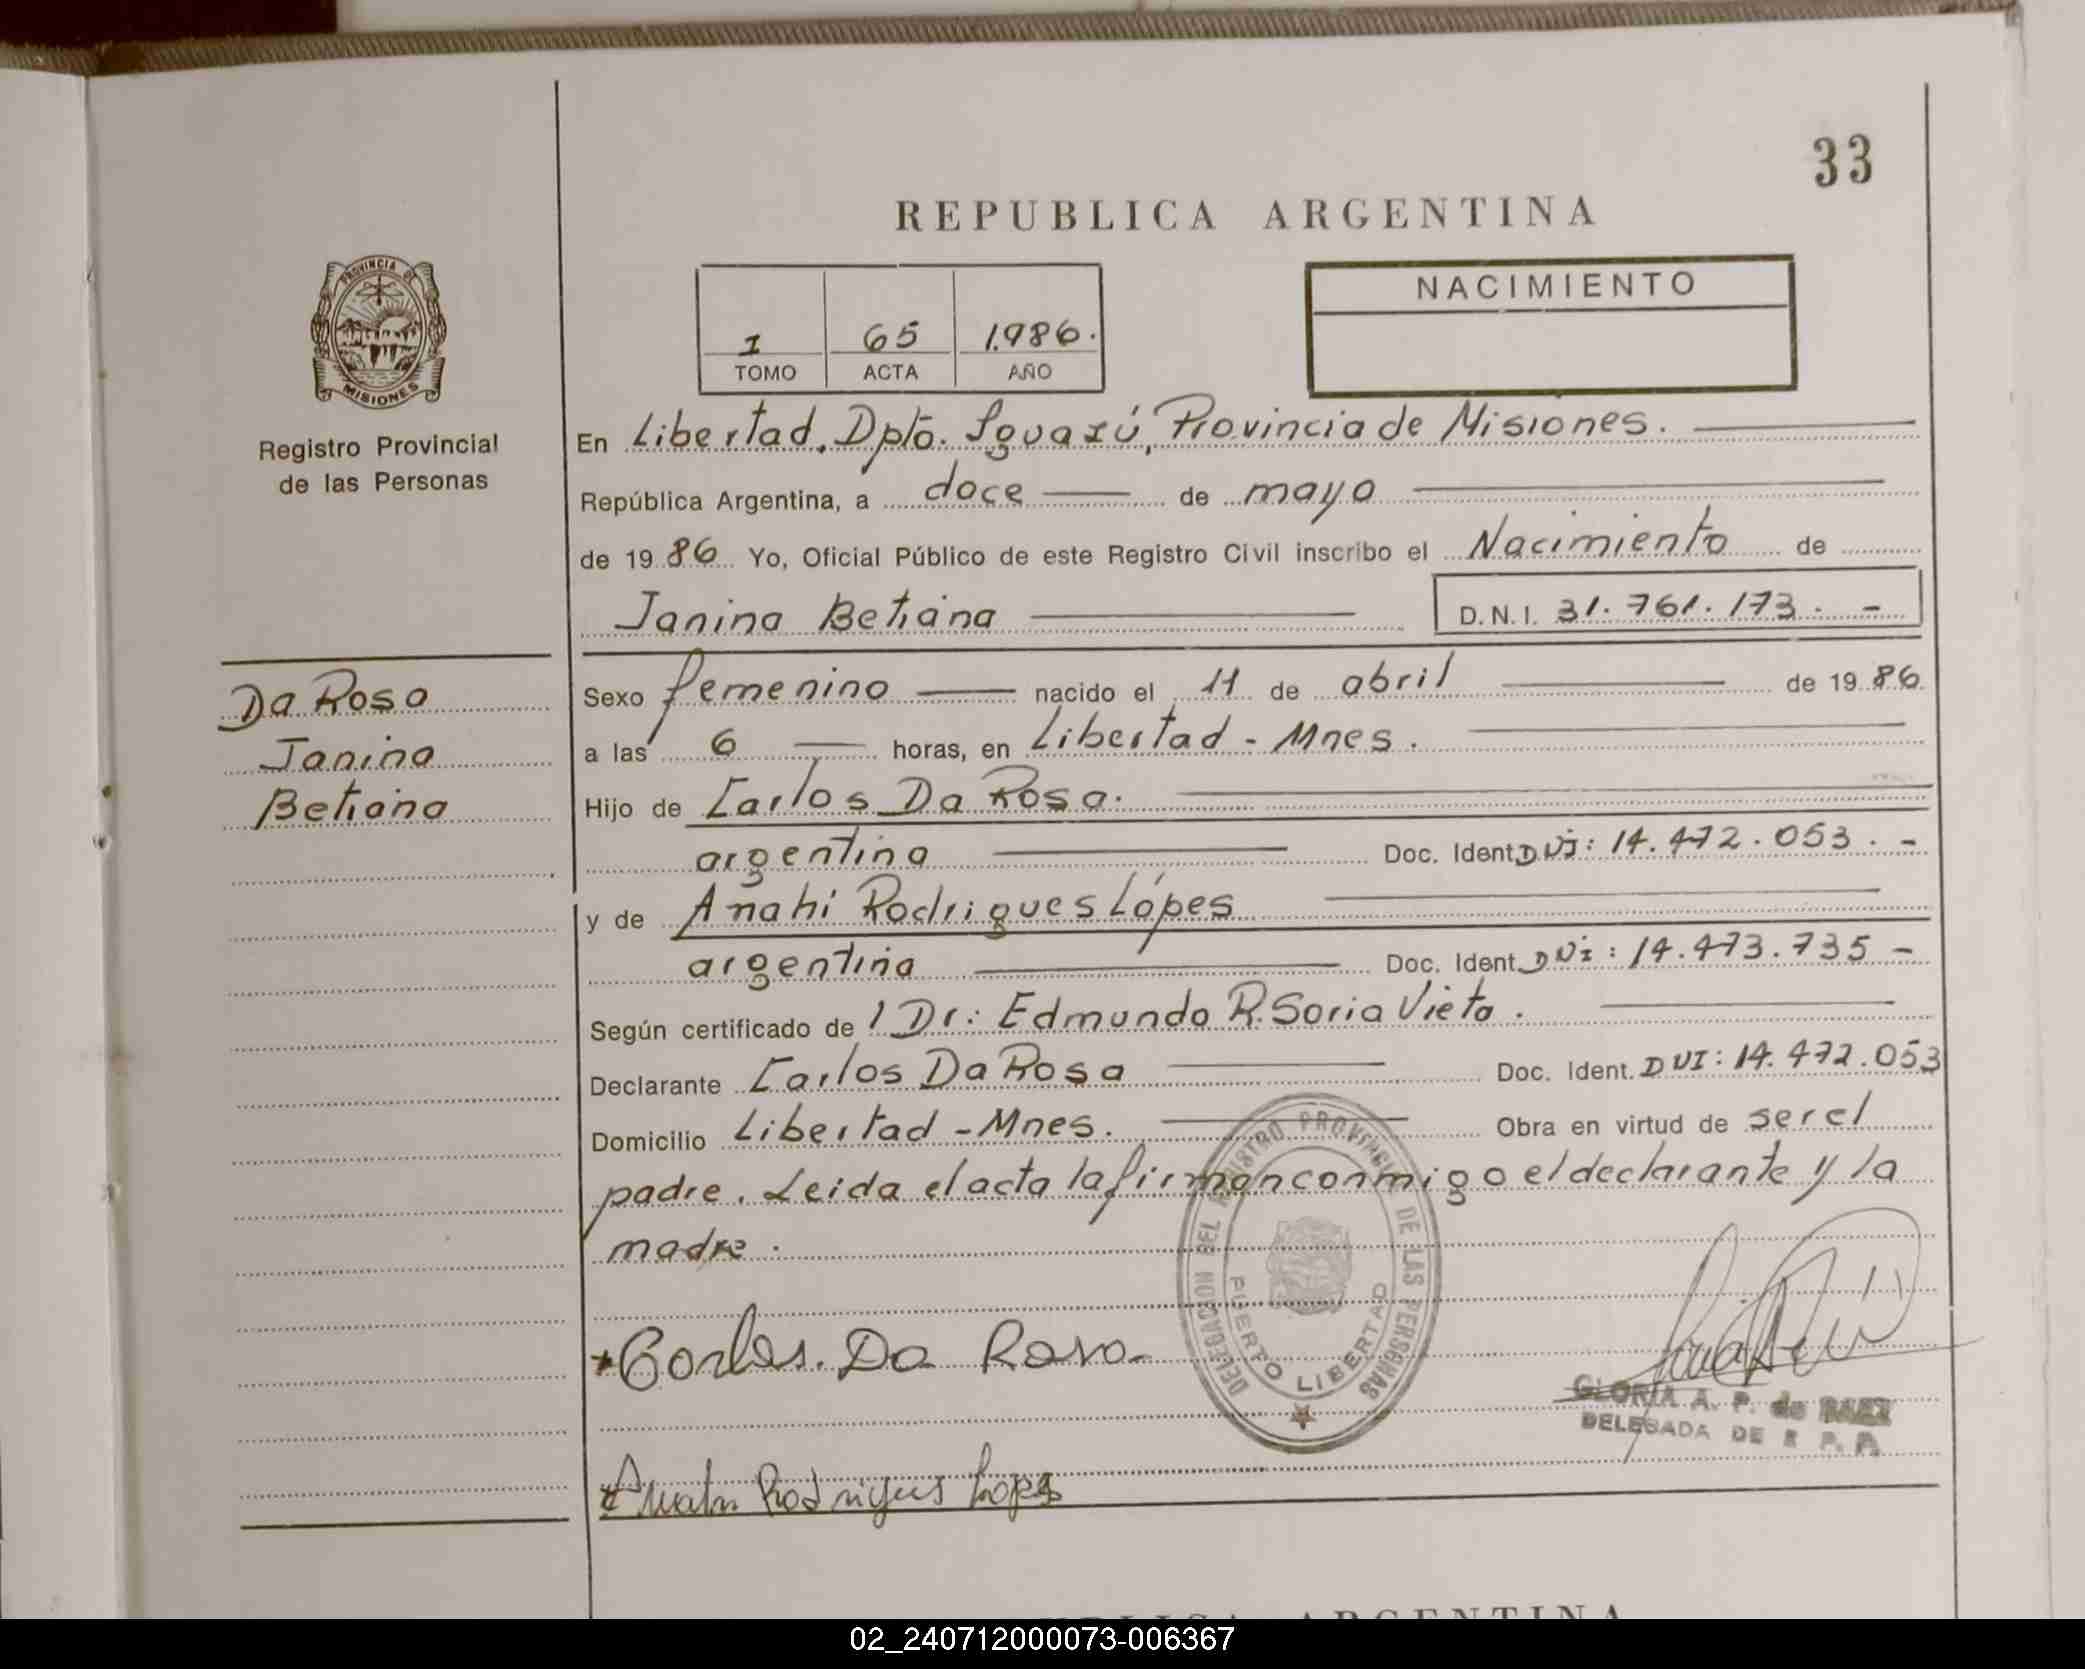 33
REPUBLICA ARGENTINA
PROVINCIA DE
MISIONES
Registro Provincial
de las Personas
I 65 1.986.
TOMO ACTA AÑO
NACIMIENTO
En Libertad, Dpto. Iguazú, Provincia de Misiones.
República Argentina, a doce de mayo
de 1986 Yo, Oficial Público de este Registro Civil inscribo el Nacimiento de
Janina Betiana D.N.I. 31.761.173.-
Da Rosa
Janina
Betiana
Sexo femenino nacido el 11 de abril de 1986
a las 6 horas, en Libertad - Mnes.
Hijo de Carlos Da Rosa.
argentina Doc. Ident. DUI: 14.472.053.-
y de Anahi Rodrigues Lópes
argentina Doc. Ident. DUI: 14.473.735-
Según certificado de l Dr: Edmundo R. Soria Vieta.
Declarante Carlos Da Rosa Doc. Ident. DUI: 14.472.053
Domicilio Libertad - Mnes. Obra en virtud de ser el
padre. Leida el acta la firman conmigo el declarante y la
madre.
DELEGACION DEL REGISTRO PROVINCIAL DE LAS PERSONAS
PUERTO LIBERTAD
Carlos. Da Rosa
GLORIA A. P. de BAEZ
DELEGADA DE R P. P.
Anahi Rodrigues Lopes
REPUBLICA ARGENTINA
02_240712000073-006367